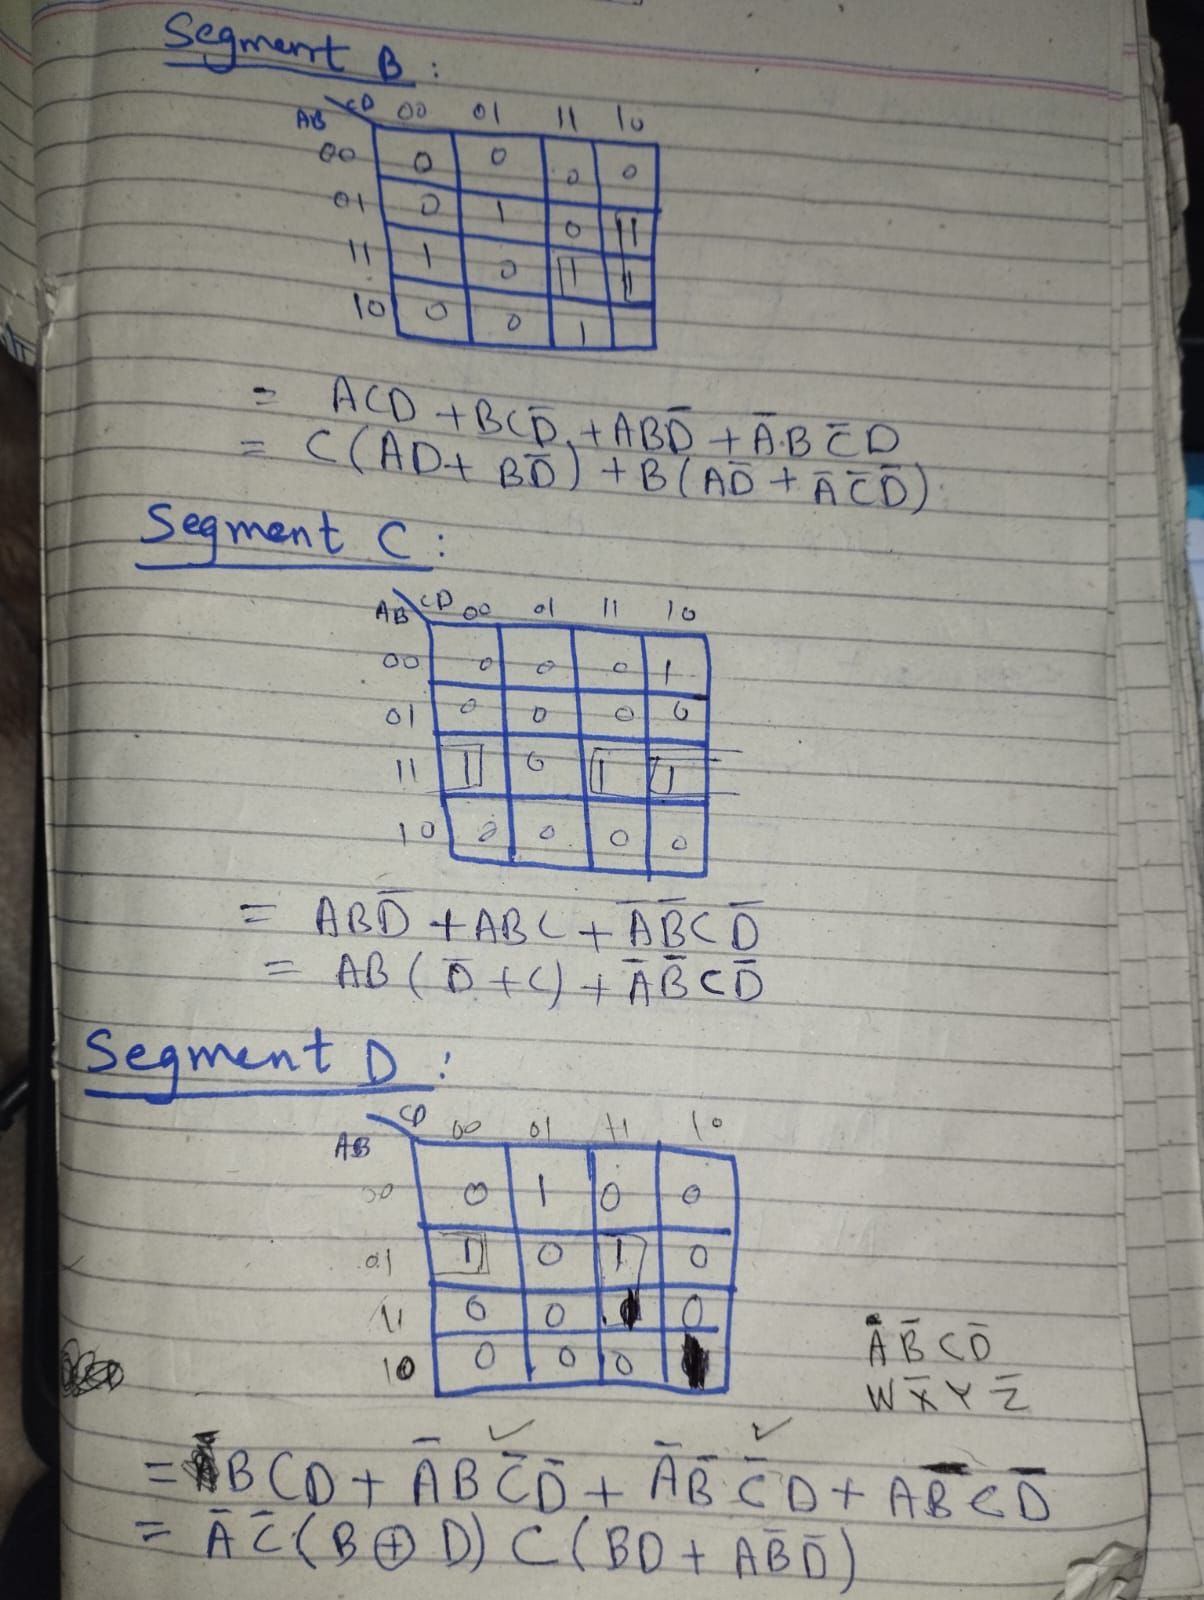 Segment B :
AB CD 00 01 11 10
00 0 0 0 0
01 0 1 0 1
11 1 0 1 1
10 0 0 1
= ACD + BCD̅ + ABD̅ + A̅·B C̅ D
= C(AD + BD̅) + B(AD̅ + A̅ C̅ D̅)
Segment C :
AB CD 00 01 11 10
00 0 0 0 1
01 0 0 0 0
11 1 0 1 1
10 0 0 0 0
= ABD̅ + ABC + A̅ B̅ C D̅
= AB(D̅ + C) + A̅ B̅ C D̅
Segment D :
AB CD 00 01 11 10
00 0 1 0 0
01 1 0 1 0
11 0 0 0
10 0 0 0
A̅ B̅ C D̅
W X̅ Y Z̅
= B C D + A̅ B C̅ D̅ + A̅ B̅ C̅ D + A B̅ C D̅
= A̅ C̅ (B ⊕ D) C (BD + A B̅ D̅)